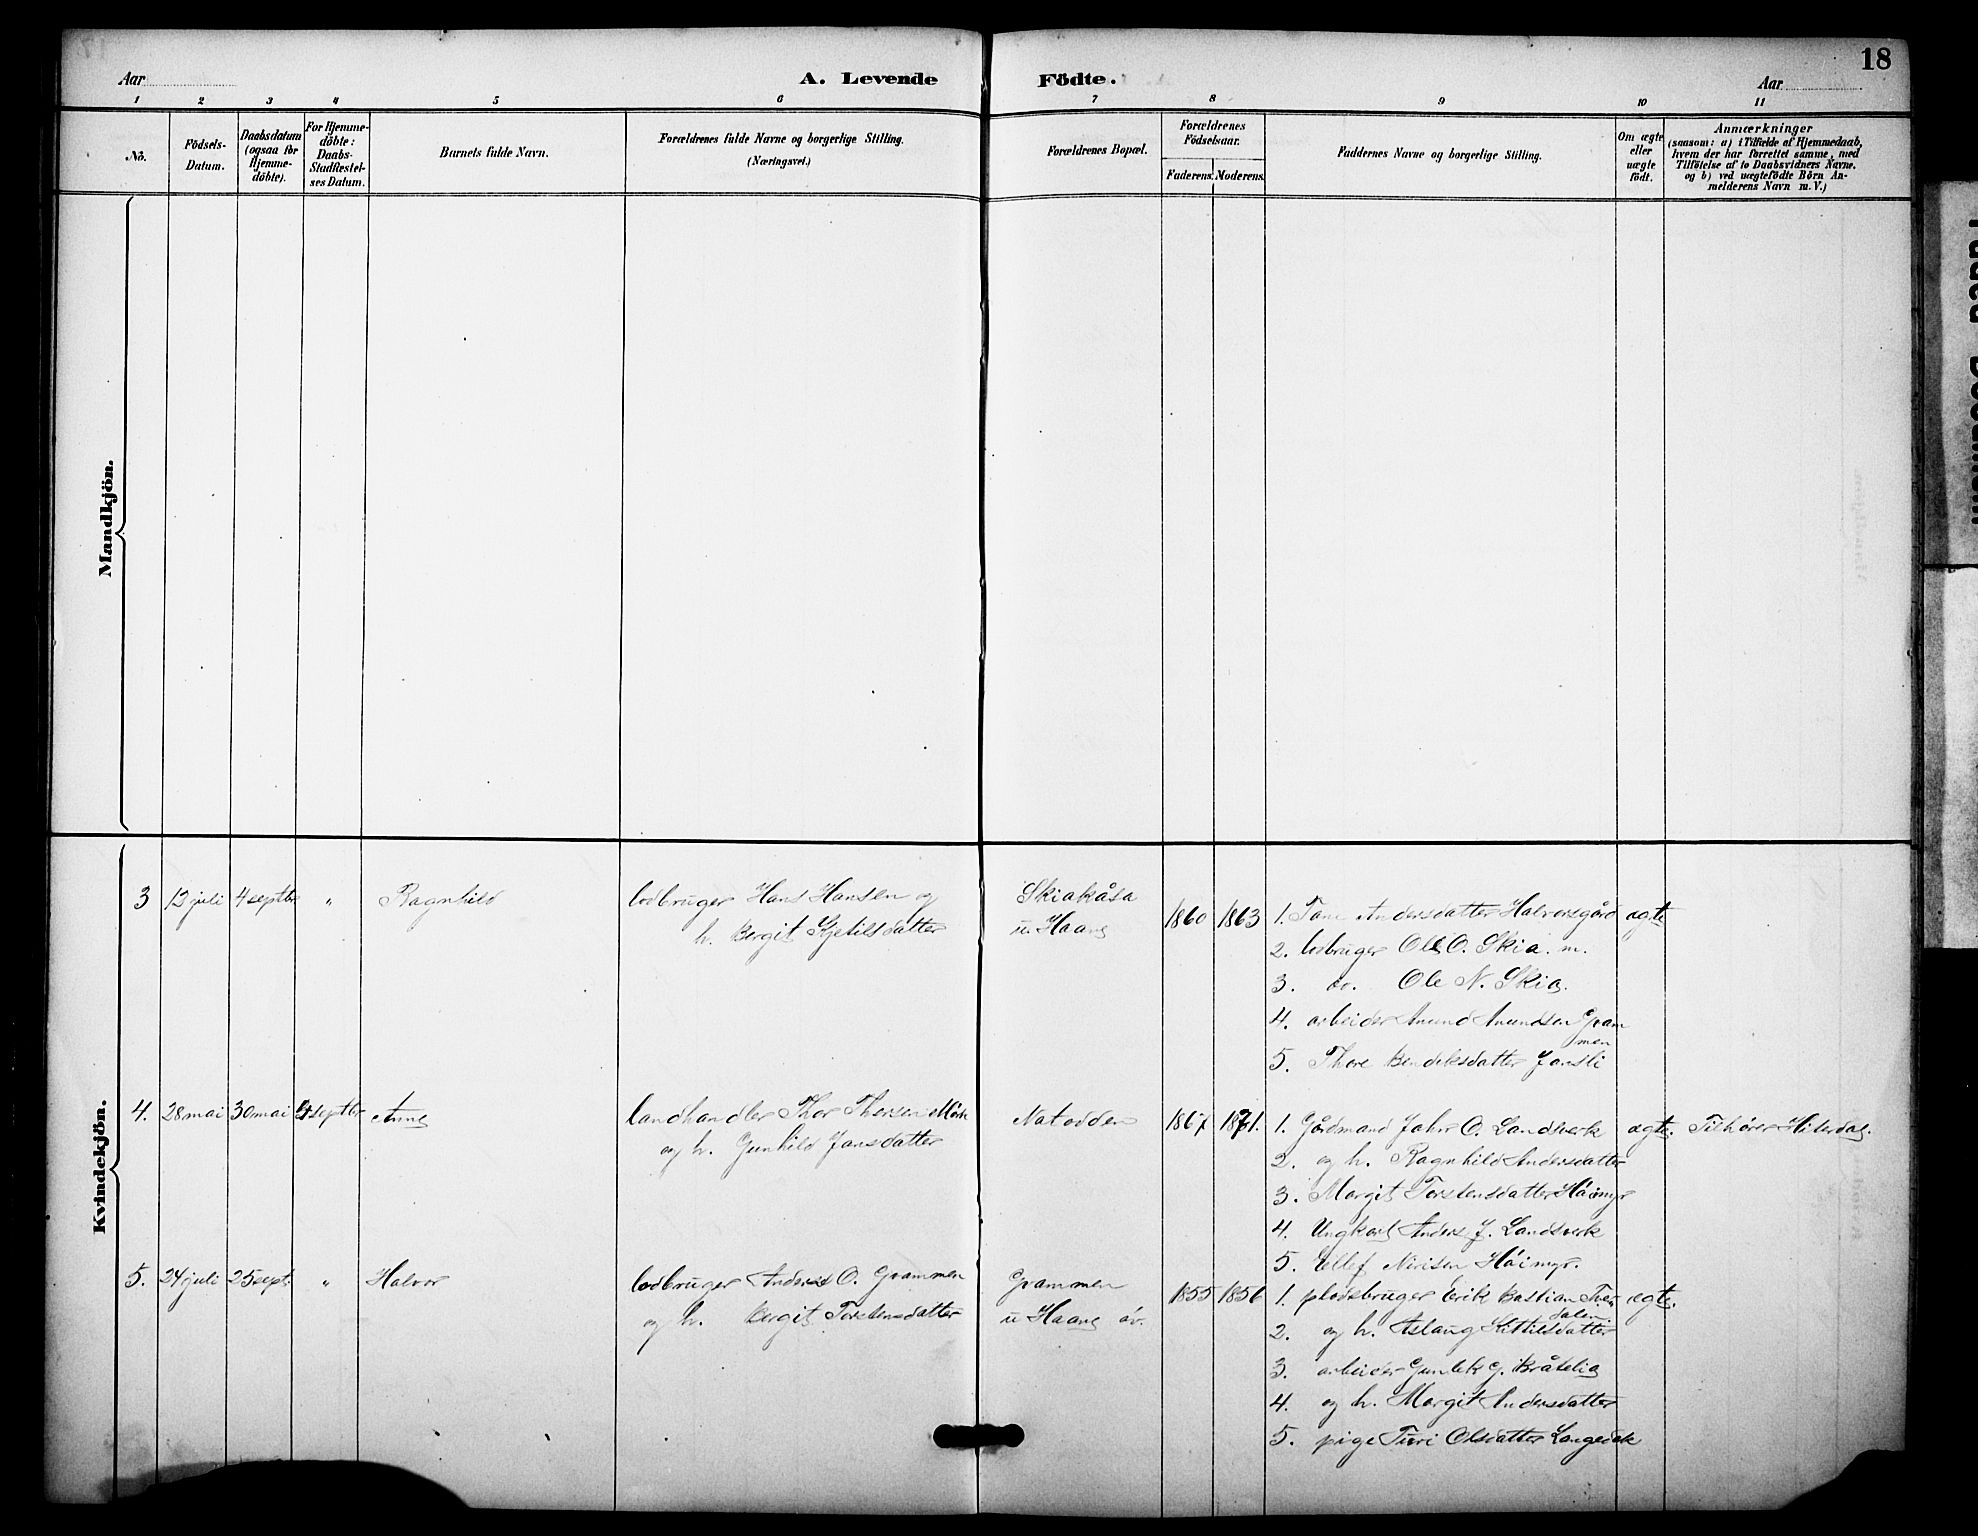 18
Aar
A. Levende Födte.
Aar
1 2 3 4 5 6 7 8 9 10 11
No.
Födsels-
Datum.
Daabsdatum
(ogsaa for
Hjemme-
döbte).
For Hjemme-
döbte:
Daabs-
Stadfæstel-
ses Datum.
Barnets fulde Navn.
Forældrenes fulde Navne og borgerlige Stilling.
(Næringsvei.)
Forældrenes Bopæl.
Forældrenes
Födselsaar.
Faderens. Moderens.
Faddernes Navne og borgerlige Stilling.
Om ægte
eller
uægte
födt.
Anmærkninger
(saasom: a) i Tilfælde af Hjemmedaab,
hvem der har forrettet samme, med
Tilföielse af to Daabsvidners Navne.
og b) ved uægtefödte Börn An-
melderens Navn m. V.)
Mandkjön.
Kvindekjön.
3 12 juli 4 septbr „ Ragnhild
lodbruger Hans Hansen og
h. Bergit Kjetilsdatter
Skiakåsa
u. Haave
1860 1863
1. Tone Andersdatter Halvorsgård ægte
2. lodbruger Ole O. Skia. m.
3. do. Ole N. Skia.
4. arbeider Anund Anundsen Gram
men
5. Thore Bendiksdatter Jønsli
4. 28 mai 30 mai 4 septbr Anne
landhandler Thor Thorsen Mørk
og h. Gunhild Jansdatter
Notodden
1867 1871.
1. Gårdmand Johr O. Landsverk ægte. Tilhører Hiterdal.
2. og h. Ragnhild Andersdatter
3. Margit Torstensdatter Høimyr
4. Ungkarl Anders J. Landsverk
5. Ellef Nirisen Høimyr.
5. 24 juli 25 sept. „ Halvor
lodbruger Anders O. Grammen
og h. Bergit Torstensdatter
Grammen
u Haave øv.
1855 1856
1. pladsbruger Erik Bastian Tver ægte.
dalen.
2. og h. Aslaug Kittilsdatter
3. arbeider Gunlek G. Bråtelia
4. og h. Margit Andersdatter
5. pige Turi Olsdatter Langedek